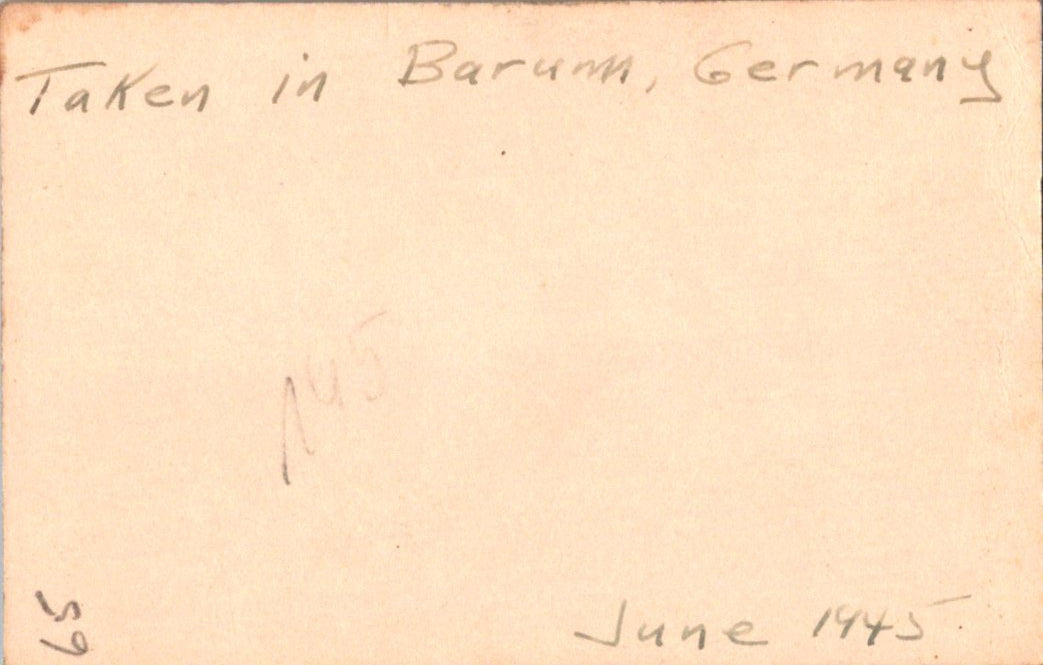 Taken in Barumm, Germany
145
65
June 1945